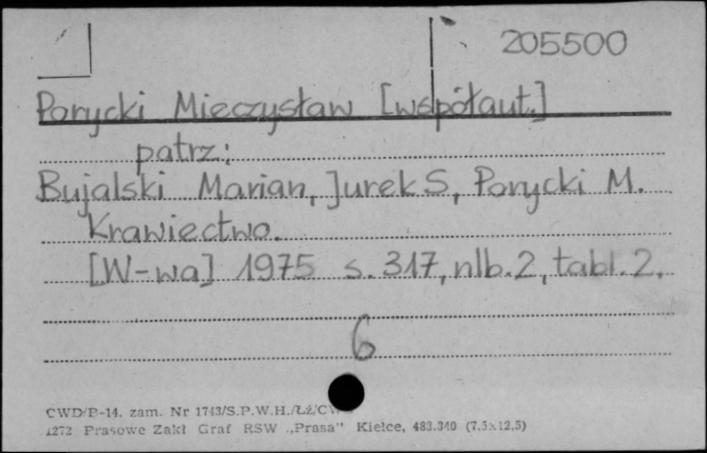 205500
Parycki Mieczysław [współaut.]
patrz:
Bujalski Marian, Jurek S, Parycki M.
Krawiectwo.
[W-wa] 1975 s. 317, nlb. 2, tabl. 2.
6
CWD/P-14. zam. Nr 1743/S.P.W.H./Łź/
1272 Prasowe Zakł Graf RSW „Prasa" Kielce, 483.340 (7.5x12.5)